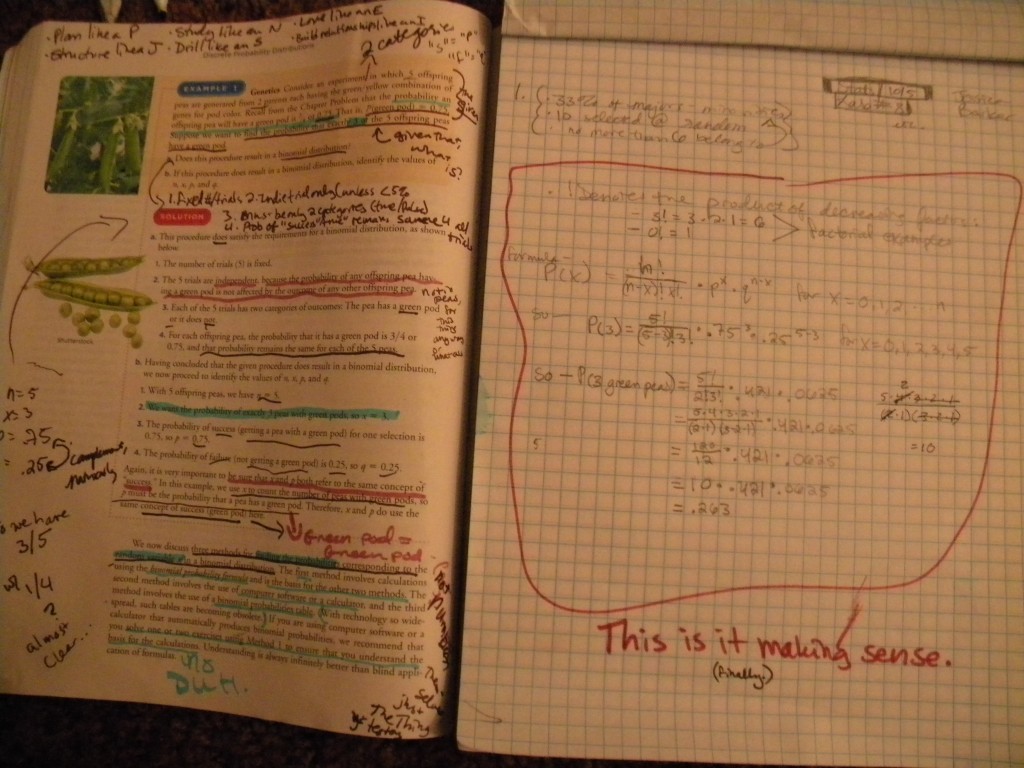 · Plan like a P · Study like an N · Love like an E
· Structure like a J · Drill like an S · Build relationships like an I
Discrete Probability Distributions
2 categories
"S" = "p"
EXAMPLE 1 Genetics Consider an experiment in which 5 offspring
peas are generated from 2 parents each having the green/yellow combination of
genes for pod color. Recall from the Chapter Problem that the probability an
offspring pea will have a green pod is
That is, P(green pod) = 0.75.
Suppose we want to find the probability that exactly 3 of the 5 offspring peas
have a green pod.
given that,
what
is?
a. Does this procedure result in a binomial distribution?
b. If this procedure does result in a binomial distribution, identify the values of
n, x, p, and q.
1. Fixed #/trials 2. Ind trial only (unless <5%
3. Bins - be only 2 categories (true/false)
4. Prob of "success/true" remains same in all
trials
SOLUTION
a. This procedure does satisfy the requirements for a binomial distribution, as shown
below.
1. The number of trials (5) is fixed.
2. The 5 trials are independent, because the probability of any offspring pea hav-
ing a green pod is not affected by the outcome of any other offspring pea.
3. Each of the 5 trials has two categories of outcomes: The pea has a green pod
or it does not.
4. For each offspring pea, the probability that it has a green pod is 3/4 or
0.75, and that probability remains the same for each of the 5 peas.
b. Having concluded that the given procedure does result in a binomial distribution,
we now proceed to identify the values of n, x, p, and q.
1. With 5 offspring peas, we have n = 5.
2. We want the probability of exactly 3 peas with green pods, so x = 3.
3. The probability of success (getting a pea with a green pod) for one selection is
0.75, so p = 0.75.
4. The probability of failure (not getting a green pod) is 0.25, so q = 0.25.
Again, it is very important to be sure that x and p both refer to the same concept of
"success." In this example, we use x to count the number of peas with green pods, so
p must be the probability that a pea has a green pod. Therefore, x and p do use the
same concept of success (green pod) here.
Green pod =
Green pod
We now discuss three methods for finding the probabilities corresponding to the
random variable x in a binomial distribution. The first method involves calculations
using the binomial probability formula and is the basis for the other two methods. The
second method involves the use of computer software or a calculator, and the third
method involves the use of a binomial probabilities table. (With technology so wide-
spread, such tables are becoming obsolete.) If you are using computer software or a
calculator that automatically produces binomial probabilities, we recommend that
you solve one or two exercises using Method 1 to ensure that you understand the
basis for the calculations. Understanding is always infinitely better than blind appli-
cation of formulas.
No
DUH.
n = 5
x = 3
p = .75
= .25
we have
3/5
1/4
?
almost
clear...
1.
· 33% of majors
· 10 selected @ random
· no more than 6 belong
· ! Denotes the product of decreasing factors.
- 3! = 3 · 2 · 1 = 6
- 0! = 1
factorial examples
formula - P(x) = n! / (n-x)! x! · p^x · q^n-x for x = 0, 1, 2, ... n
so — P(3) = 5! / (5-3)! 3! · .75^3 · .25^5-3 for x = 0, 1, 2, 3, 4, 5
so — P(3 green peas) = 5! / 2! 3! · .421 · .0625
= 5·4·3·2·1 / (2·1)(3·2·1) · .421 · .0625
= 120 / 12 · .421 · .0625
= 10 · .421 · .0625
= .263
5
= 10
This is it making sense.
(Finally.)